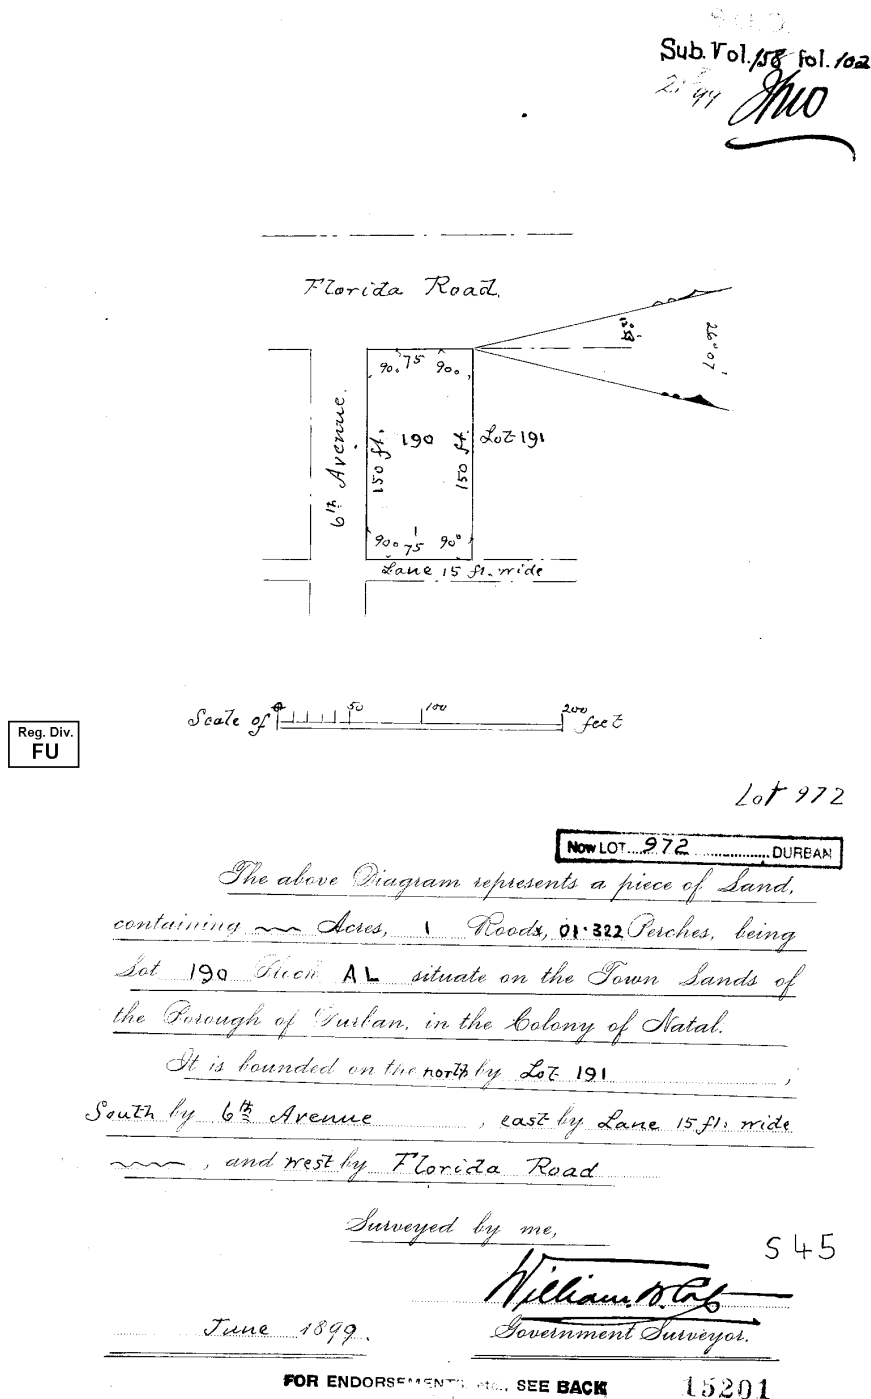 Sub. Vol. 158 fol. 102
Florida Road.
26° 07'
90° 75 90°
6th Avenue.
150 ft.
190
150 ft.
Lot 191
90° 75 90°
Lane 15 ft. wide
Scale of 0 50 100 200 feet
Reg. Div.
FU
Lot 972
Now LOT 972 DURBAN
The above Diagram represents a piece of Land,
containing Acres, 1 Roods, 01.322 Perches, being
Lot 190 Block AL situate on the Town Lands of
the Borough of Durban, in the Colony of Natal.
It is bounded on the north by Lot 191,
South by 6th Avenue, east by Lane 15 ft. wide
, and west by Florida Road
Surveyed by me,
S45
William
June 1899.
Government Surveyor.
FOR ENDORSEMENTS SEE BACK
15201